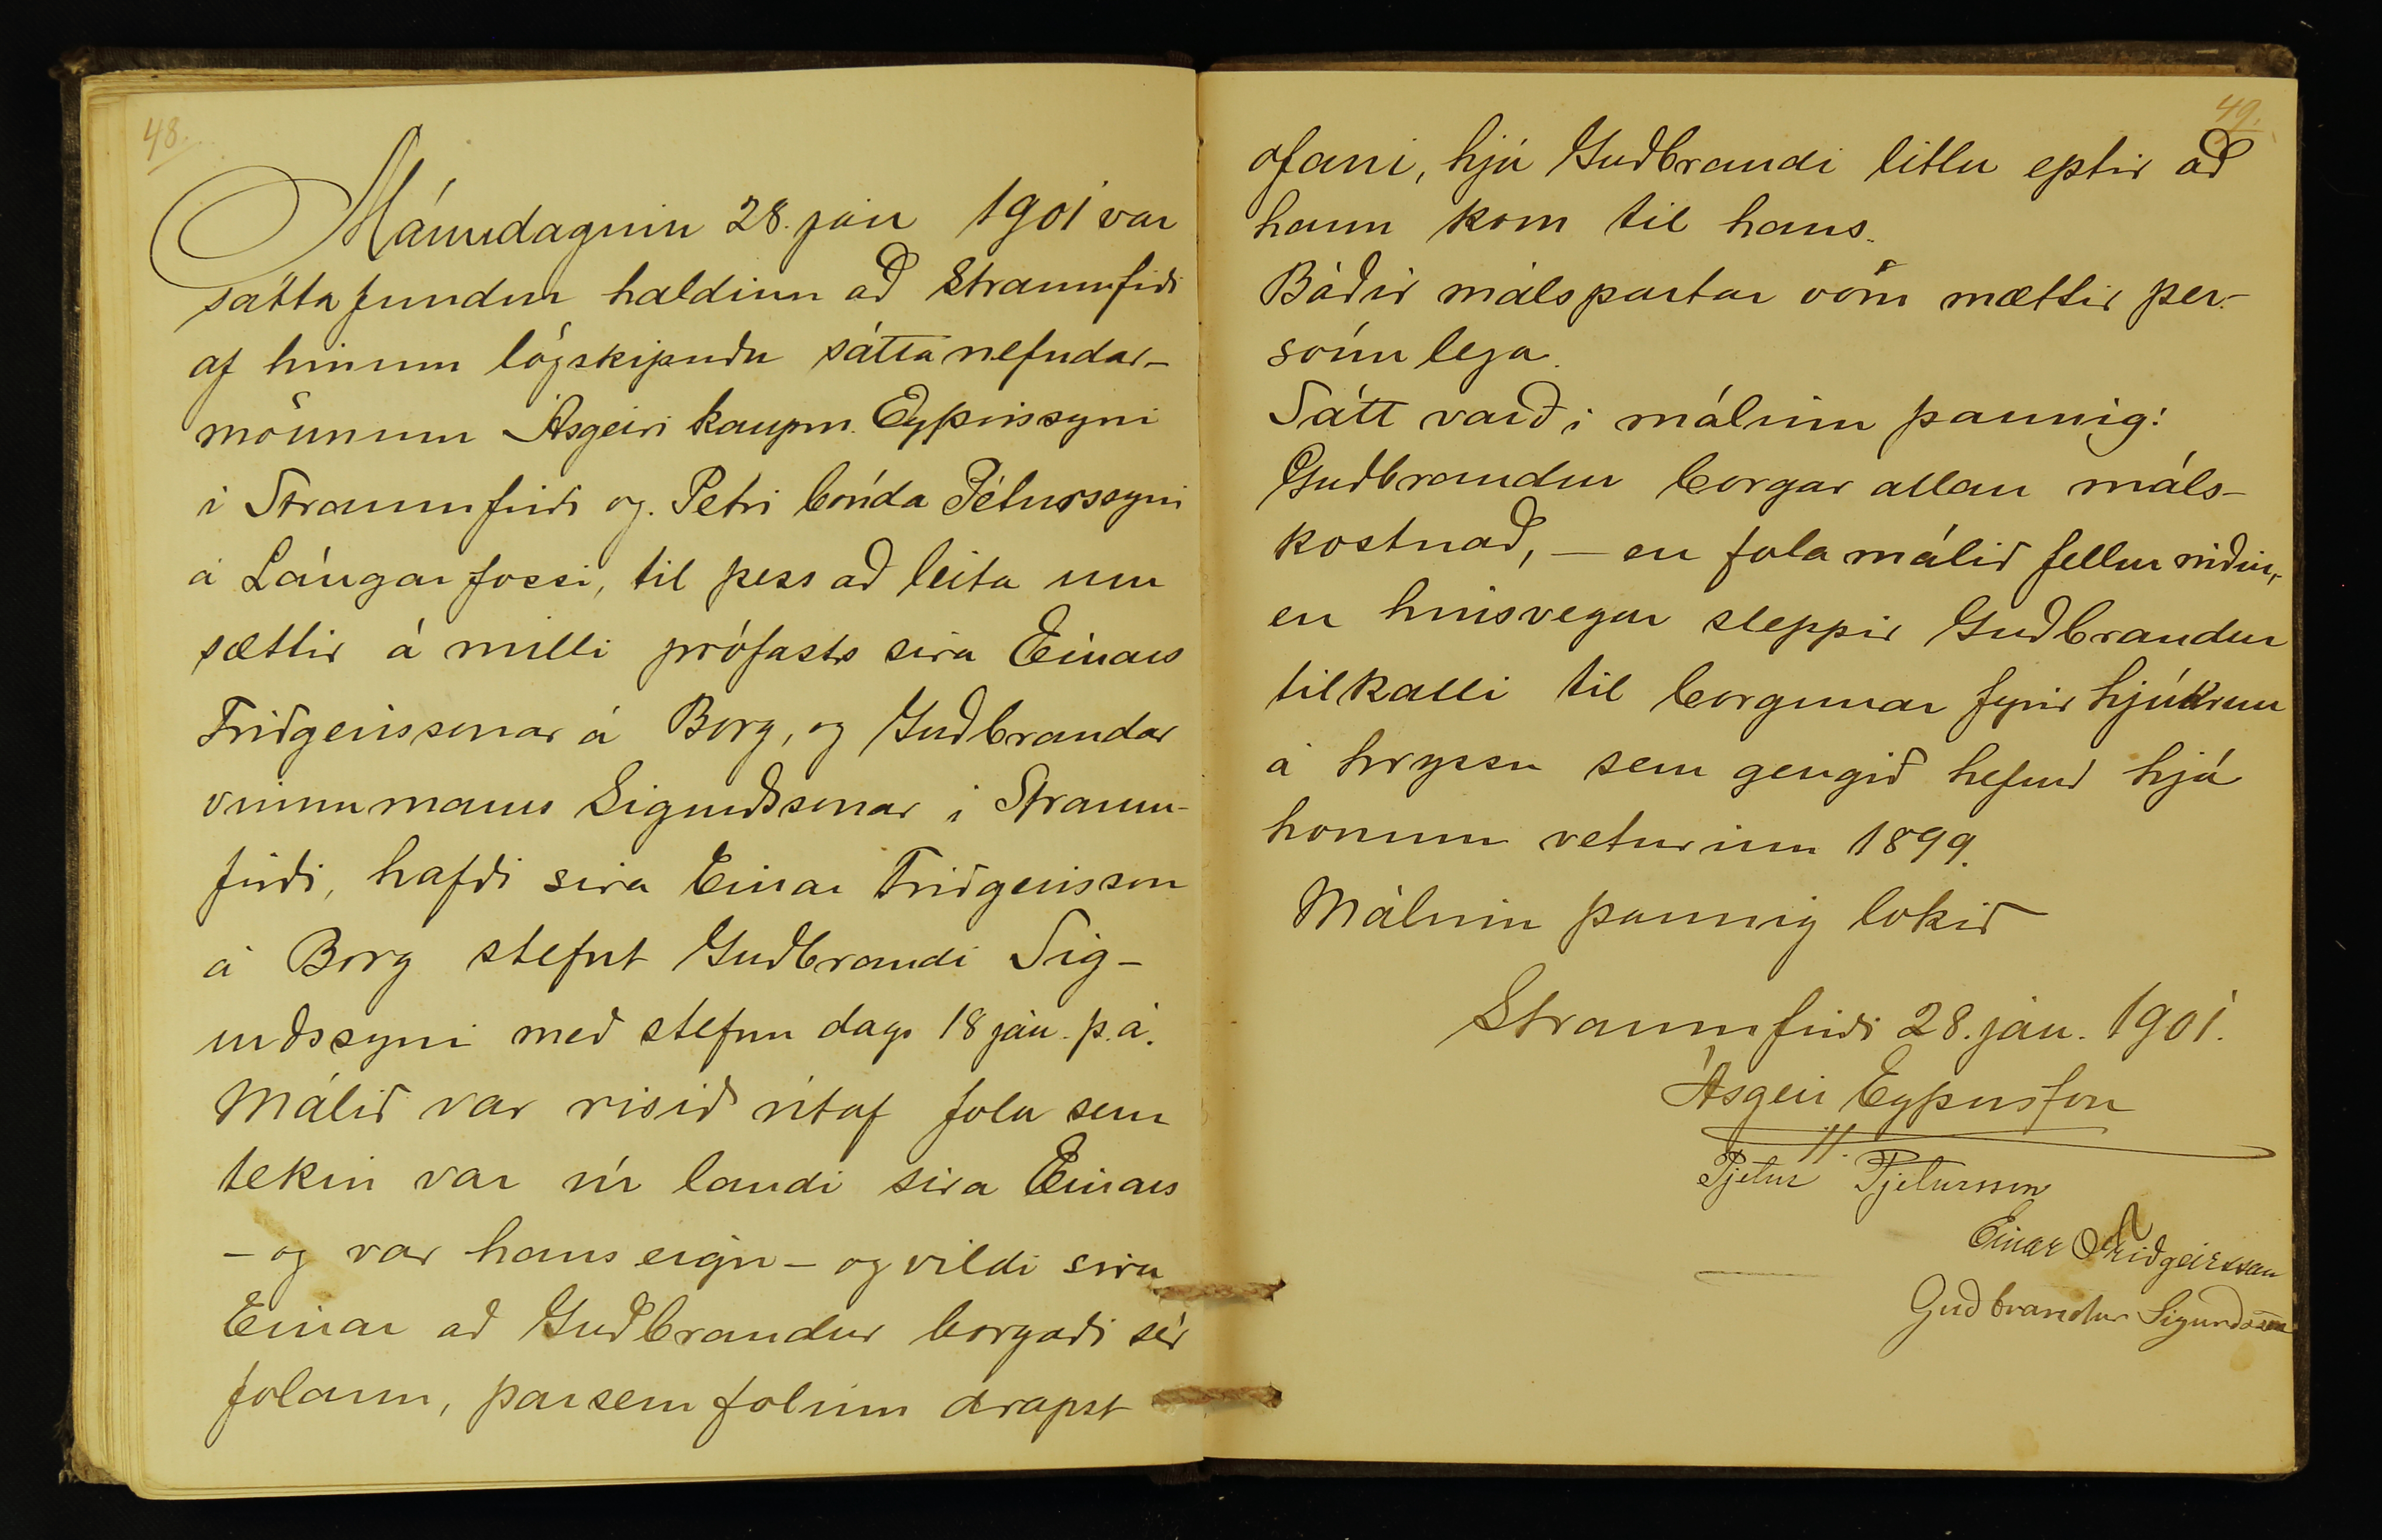 48.
Mánudaginn 28. jan 1901 var
sáttafundur haldinn að Straumfirði
af hinum lögskipuðu sáttanefndar-
mönnum Ásgeiri kaupm. Eyþórssyni
í Straumfirði og. Petri bónda Péturssyni
á Lángarfossi, til þess að leita um
sættir á milli prófasts sira Einars
Friðgeirssonar á Borg, og Guðbrandar
vinnumanns Sigurðssonar í Straum-
firði, hafði sira Einar Friðgeirsson
á Borg stefnt Guðbrandi Sig-
urðssyni með stefnu dags 18 ján. þ.á.
Málið var risið útaf fola sem
tekin var úr landi sira Einars
- og var hans eign - og vildi sira
Einar að Guðbrandur borgaði sér
folann, þarsem folinn drapst
49.
ofaní, hjá Guðbrandi litlu eptir að
hann kom til hans.
Báðir málspartar vóru mættir per-
sónulega.
Sátt varð í málinu þannig:
Guðbrandur borgar allan máls-
kostnað, - en fola málið fellur niður,
en hinsvegar sleppir Guðbrandur
tilkalli til borgunar fyrir hjúkrun
á hryssu sem gengið hefur hjá
honum veturinn 1899.
Málinu þannig lokið
Straumfirði 28. ján. 1901.
Ásgeir Eyþórsson
Pjetur Pjetursson
Einar Friðgeirsson
Guðbrandur Sigurðsson